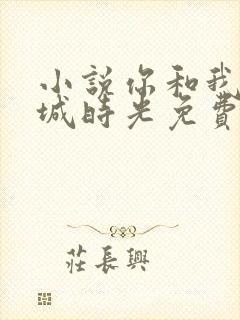 小説你和我
城時光免費
莊長興